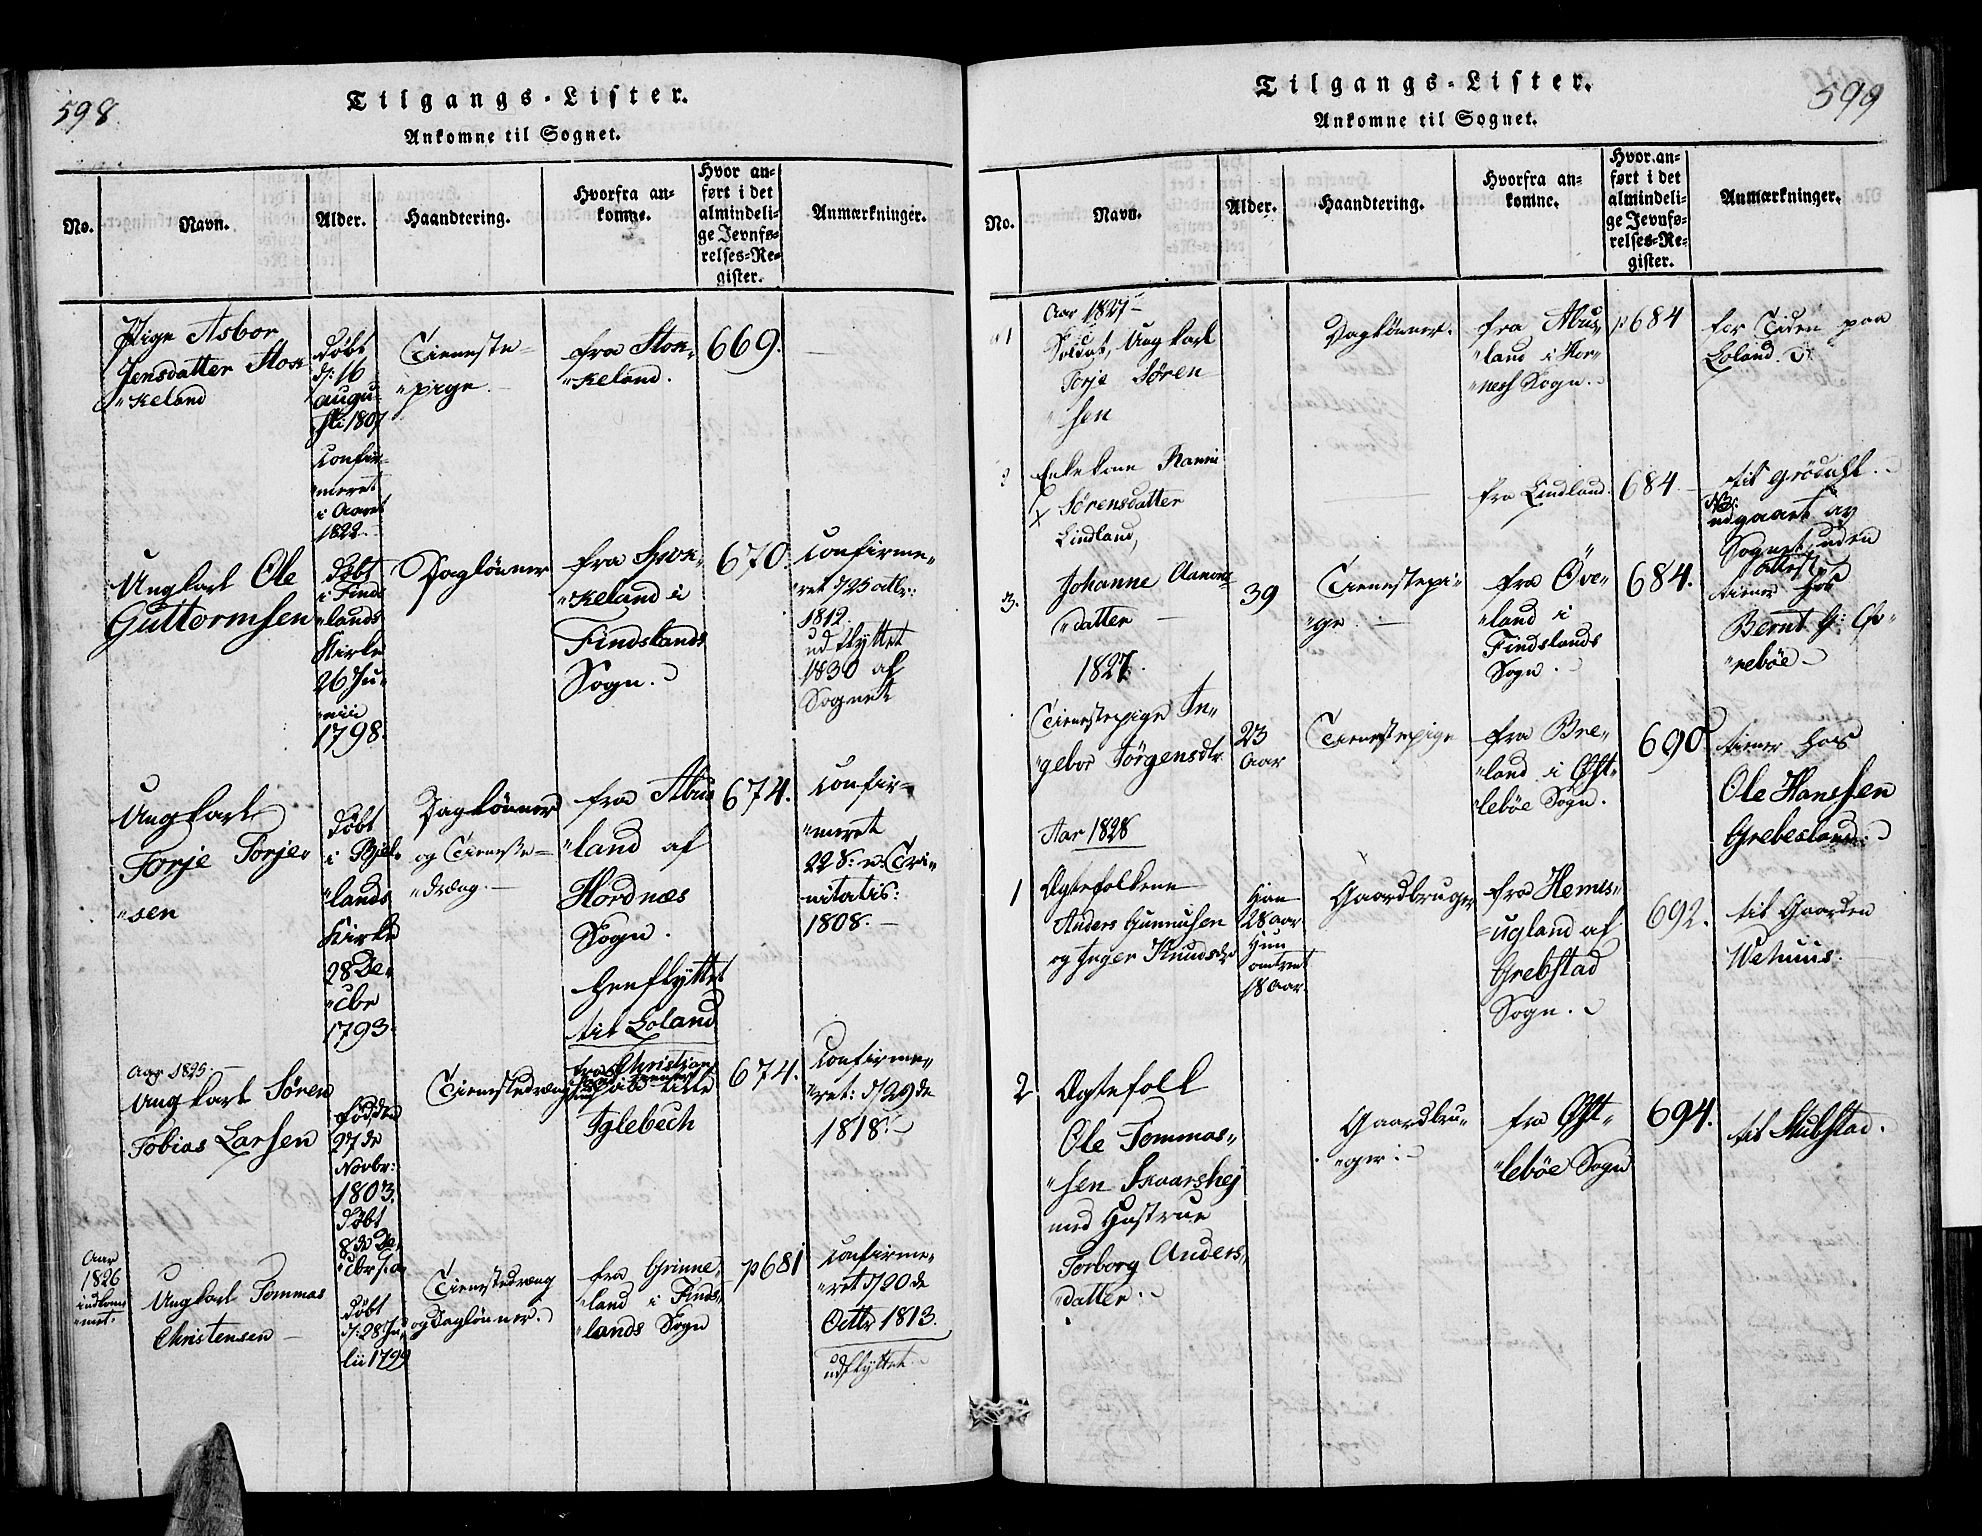 598.
Tilgangs-Lister.
Ankomne til Sognet.
No.
Navn.
Alder.
Haandtering.
Hvorfra an-
komne.
Hvor an-
ført i det
almindeli-
ge Jevnfø-
relses-Re-
gister.
Anmærkninger.
Pige Asbor
Jensdatter Stok
"keland
døbt
d: 16
augu-
sti 1807
Confir-
"meret
i Aaret
1822.
Tieneste-
"pige.
fra Stok-
"keland.
669.
Ungkarl Ole
Guttormsen
døbt
i Finds
"lands
Kirke
26 Ju-
"nii
1798.
Daglönner
fra
"keland i
Findslands
Sogn.
670.
Confirme-
"ret
1812.
udflyttet
1830 af
Sognet
Ungkarl
Torje Torje-
"sen
døbt
i Bjel-
"lands
Kirke
28 De-
"cbr
1793.
Daglönner
og Tieneste-
"dræng.
fra Abus
"land af
Hordnæs
Sogn.
henflyttet
til Loland
674.
Confir-
"meret
22 S: p: Tri-
nitatis:
1808.
Aar 1825.
Ungkarl Sören
Tobias Larsen
fødd
27 de
Novbr:
1803.
døbt
8 de De-
"cbr
Tienestedræng
fra Christian-
Iglebech
674.
Confirme-
"ret: 29 de
1818.
Aar
1826
indkom-
"met.
Ungkarl Tommas
Christensen
døbt
d: 28 Ju-
lii 1799
Tienestedræng
og Daglönner.
fra Grinne-
"land i Finds-
"lands Sogn
p 681
Confirme-
"ret 20 de
Octbr 1813.
udflyttet.
599
Tilgangs-Lister.
Ankomne til Sognet.
No.
Navn.
Alder.
Haandtering.
Hvorfra an-
komne.
Hvor an-
ført i det
almindeli-
ge Jevnfø-
relses-Re-
gister.
Anmærkninger.
Aar 1827
1
Soldat, Ungkarl
Torje Sören
"sen
Daglönner.
fra Abus-
"land i Hor-
"ness Sogn.
p 684
for Tiden paa
Loland.
Enkekone
Sörensdatter
Lindland,
fra Lindland.
684.
til Grödahl.
NB:
udgaaet af
Sognet uden
Attest
3.
Johanne Aamons
"datter
1827.
39
Tienestepi-
"ge.
fra Öve-
"land i
Findslands
Sogn.
684.
tiener hos
Bernt
"nebøe
Tienestepige In-
"gebor Jörgensdtr
23
Aar
Tienestepige
fra Bre-
"land i Öst-
"lebøe Sogn.
690
tiener hos
Ole Hanssen
Grebesland.
Aar 1828
1
Ægtefolkene
Anders Gunnufsen
og Inger Knudsdtr
Han
28 Aar
Hun
omtrent
18 Aar.
Gaardbruger
fra Hems-
"ugland af
Grebstad
Sogn.
692.
til Gaarden
Wehuus.
2
Ægtefolk
Ole Tommas-
"sen Skaarshej
med Hustrue
Torborg Anders-
"datter.
Gaardbru-
"ger.
fra Öst-
"lebøe Sogn
694.
til Stubstad.